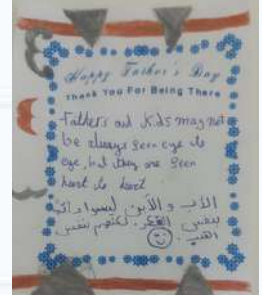 Happy Father's Day
Thank You For Being There
Fathers and Kids may not
be always seen eye to
eye, but they are seen
heart to heart
الأب و الأبن ليسوا دائما
بنفس الفكر. لكنهم بنفس
القلب.